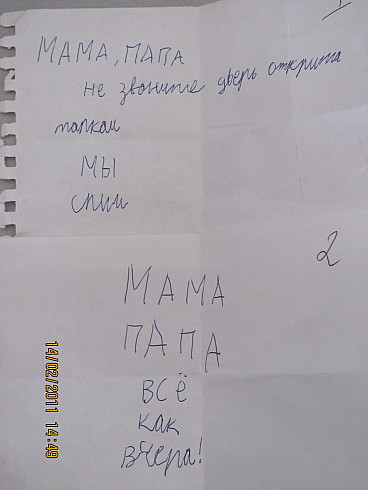 1
МАМА, ПАПА
не звоните дверь открыта
толкай
МЫ
спим
2
МАМА
ПАПА
ВСЁ
как
вчера!
14/02/2011 14:49